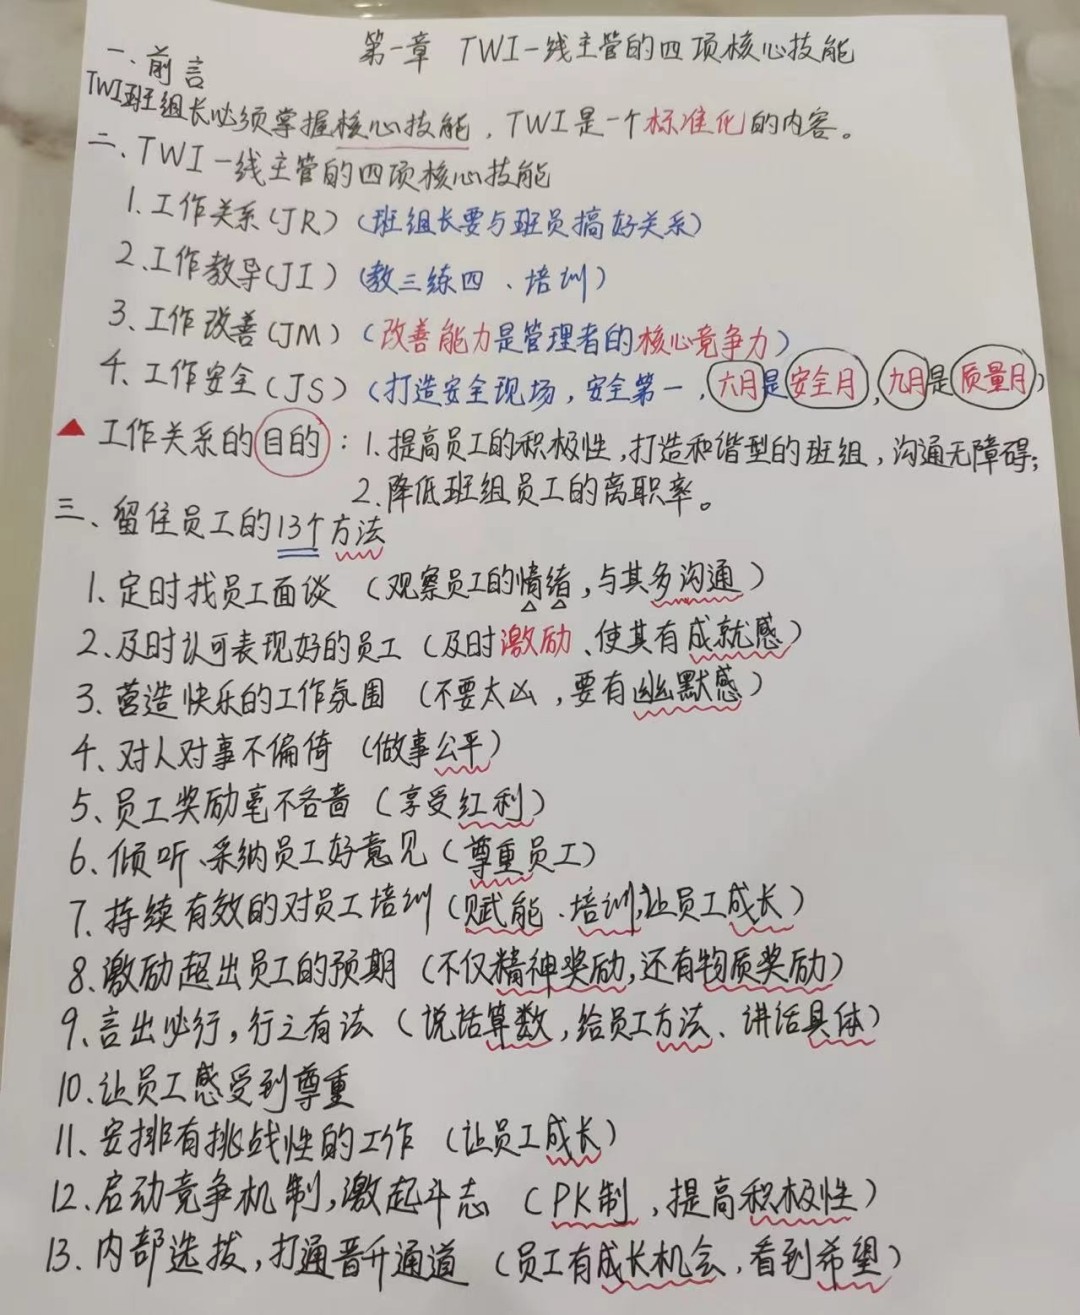 第一章 TWI一线主管的四项核心技能
一、前言
TWI班组长必须掌握核心技能，TWI是一个标准化的内容。
二、TWI一线主管的四项核心技能
1、工作关系(JR)（班组长要与班员搞好关系）
2、工作教导(JI)（教三练四、培训）
3、工作改善(JM)（改善能力是管理者的核心竞争力）
4、工作安全(JS)（打造安全现场，安全第一，六月是安全月，九月是质量月）
▲工作关系的目的：1.提高员工的积极性，打造和谐型的班组，沟通无障碍；
2.降低班组员工的离职率。
三、留住员工的13个方法
1、定时找员工面谈（观察员工的情绪，与其多沟通）
2、及时认可表现好的员工（及时激励、使其有成就感）
3、营造快乐的工作氛围（不要太凶，要有幽默感）
4、对人对事不偏倚（做事公平）
5、员工奖励毫不吝啬（享受红利）
6、倾听、采纳员工好意见（尊重员工）
7、持续有效的对员工培训（赋能、培训，让员工成长）
8、激励超出员工的预期（不仅精神奖励，还有物质奖励）
9、言出必行，行之有法（说话算数，给员工方法、讲话具体）
10、让员工感受到尊重
11、安排有挑战性的工作（让员工成长）
12、启动竞争机制，激起斗志（PK制，提高积极性）
13、内部选拔，打通晋升通道（员工有成长机会，看到希望）